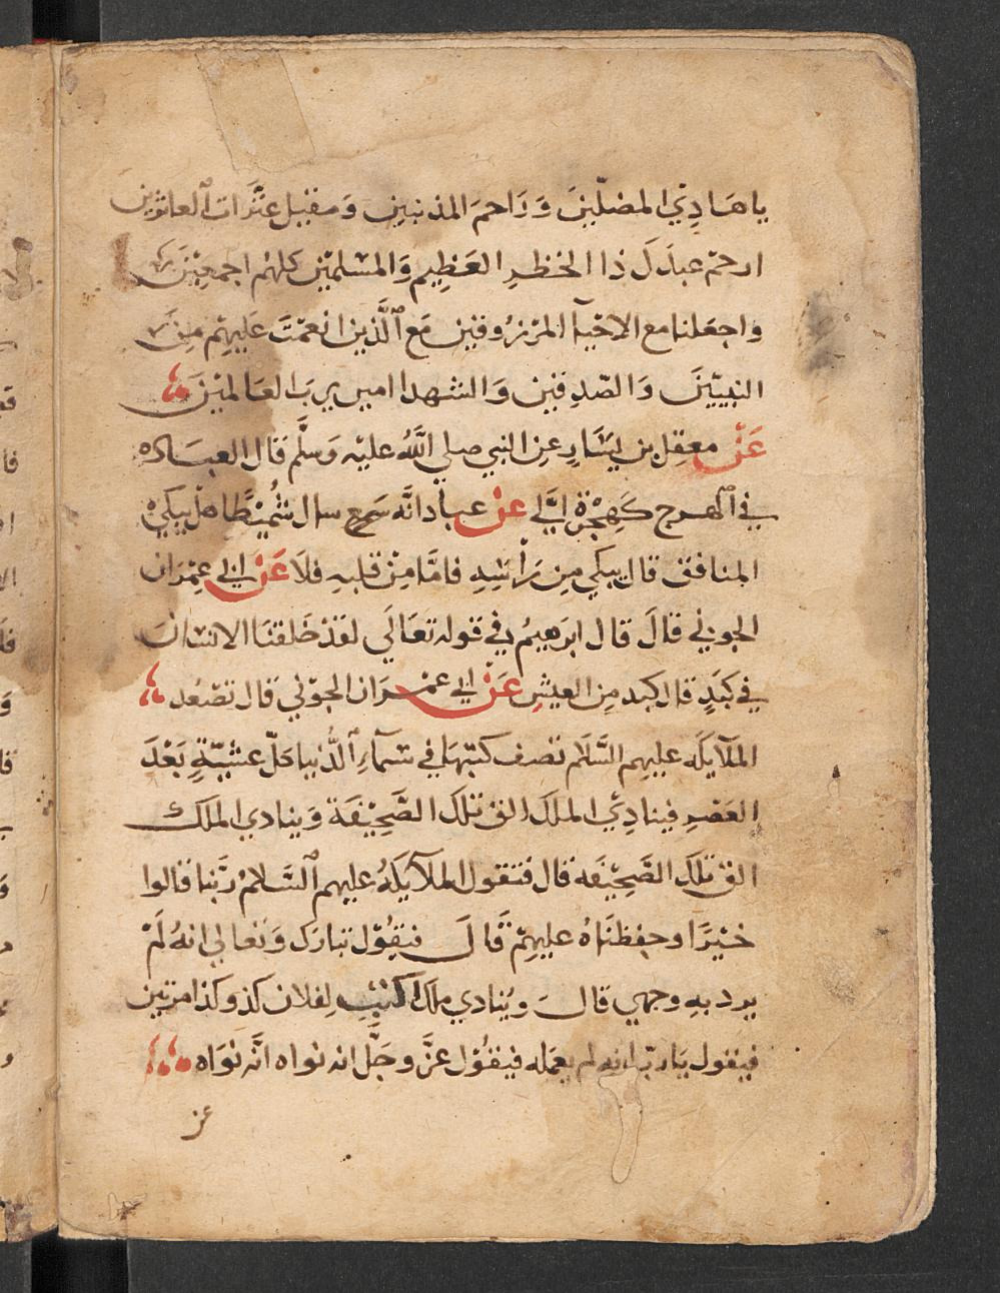 يا هَادِيَ المضلّينَ وَرَاحمَ المذنبين وَمقيل عَثَرات العاثرين
ارحمْ عبدَكَ ذا الخطرِ العَظِيم وَالمسلمين كلهُم اجمعينَ
واجعَلنا مع الاحيآ المرْزُوقين مَع ٱلَّذين انعمْتَ عَليهِم مِنَ
النبيّينَ وَالصّدِقين وَالشهدا امين يرب العَالمينَ
عَنْ معقِل بن يسَارٍ عن النبي صلي اللَّهُ عليْه وَسَلَّم قَال العبَاده
في ٱلهرج كَهِجْرَةٍ اليَّ عنْ عبادانَّه سَمع سال شُميْطًا هل يبكي
المنافق قال يبكي مِن رَأسِهِ فامَّا مِن قلبه فلَا عَنْ ابي عِمْرَان
الجوني قالَ قال ابرَهيمُ في قوله تعَالَي لقدْ خَلقنَا الانسَانَ
في كَبَدٍ قال كبد مِن العيشِ عَنْ ابي عمرَان الجوْني قال تصْعُد
الملآيكه عليهم السَّلَام تصف كتبها في سمآءِ ٱلدُّنيا كلّ عشيّةٍ بَعْدَ
العَصْرِ فينادِي الملَك الق تلْك الصَّحِيْفَة وَينادي الملَك
الق تلكَ الصَّحِيْفَه قال فتقول الملآيكَهُ عليهم ٱلسَّلامْ رَبّنا قالوا
خيْرًا وحفِظنَاهُ عليهِمْ قَالَ فيَقُوْل تبارَك وَتعَالي انهُ لَمْ
يرد بهِ وجهي قالَ ويُنادي ملك اكتبْ لِفلان كذ وكذا مرتين
فيقول يَارب انه لم يعمَله فيقُوْل عزَّ وجَلَّ انه نواه انَّه نوَاه
عن